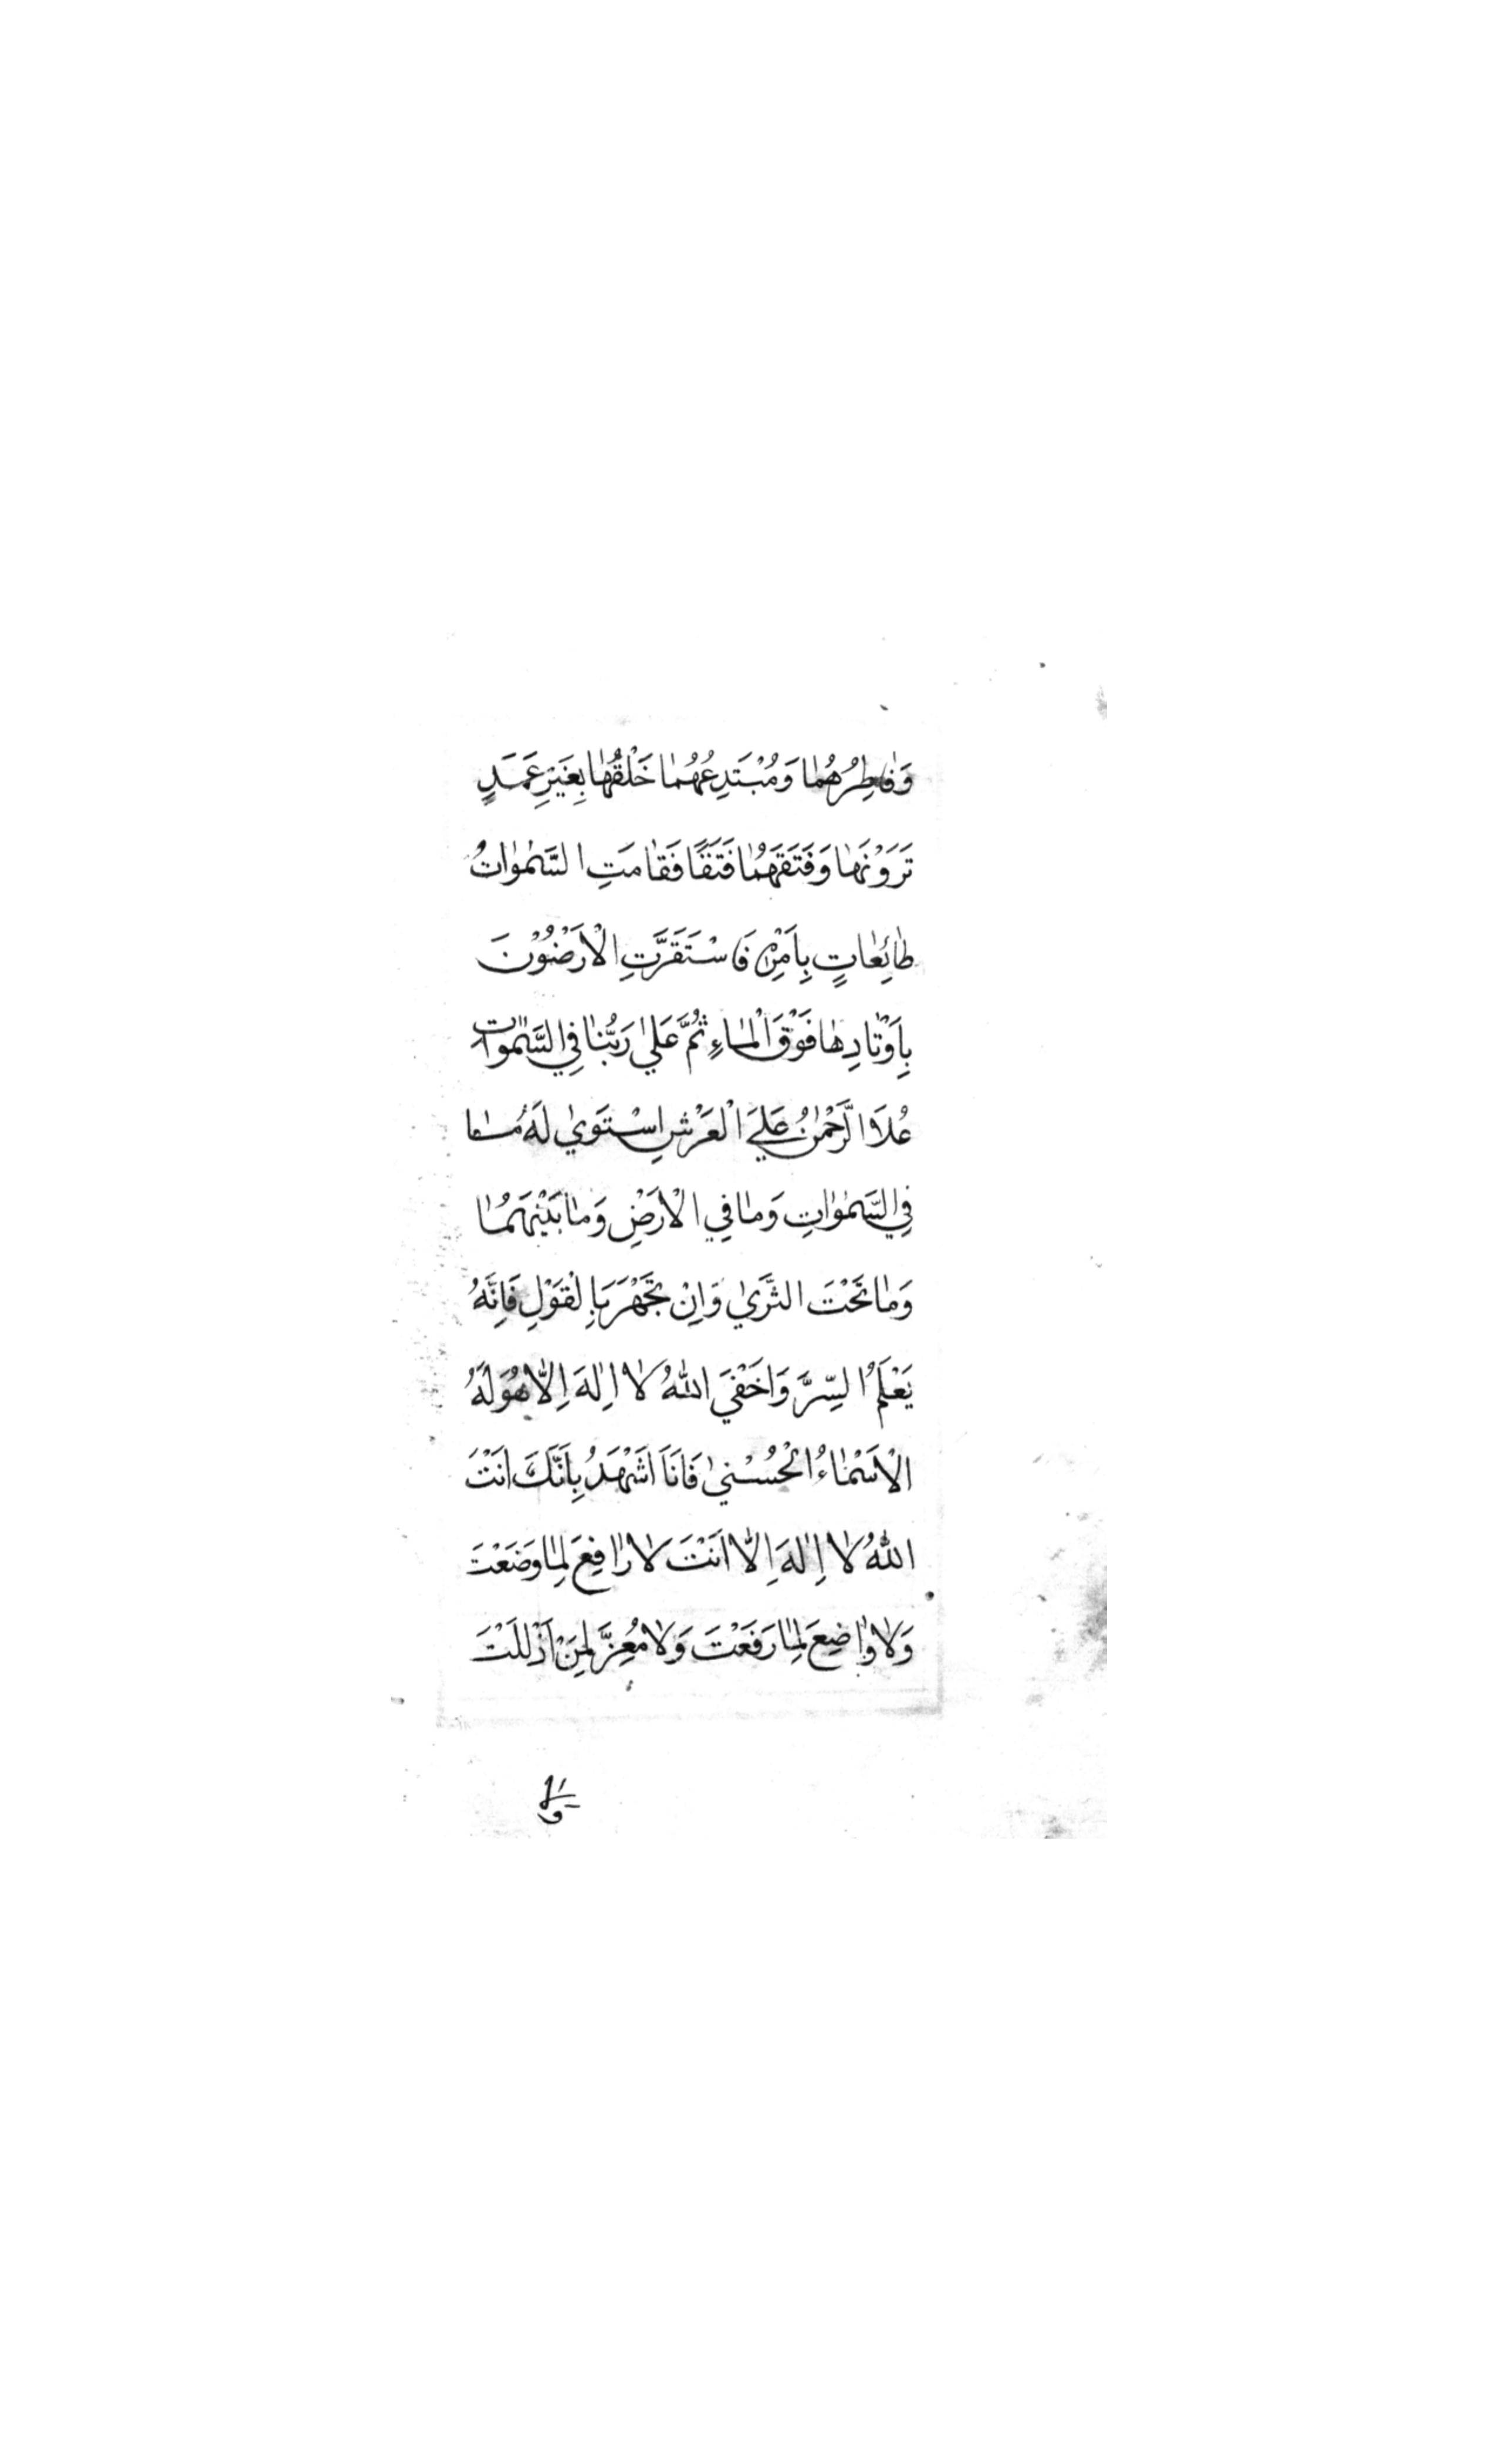 وَفٰاطِرُهُمٰا وَمُبْتَدِعُهُمٰا خَلْقُهٰا بِغَيْرِ عَمَدٍ
تَرَوْنَهٰا وَفَتَقَهُمٰا فَتَقًا فَقٰامَتِ السَّمٰوٰاتُ
طٰائِعٰاتٍ بِاَمْرِهِ فَاسْتَقَرَّتِ الْاَرَضُوْنَ
بِاَوْتٰادِهٰا فَوْقَ الْمٰاءِ ثُمَّ عَلٰى رَبُّنٰا فِي السَّمٰوٰاتِ
عُلَا الرَّحْمٰنُ عَلَي الْعَرْشِ اسْتَوٰي لَهُ مٰا
فِي السَّمٰوٰاتِ وَمٰا فِي الْاَرْضِ وَمٰا بَيْنَهُمٰا
وَمٰا تَحْتَ الثَّرٰي وَاِنْ تَجْهَرْ بِالْقَوْلِ فَاِنَّهُ
يَعْلَمُ السِّرَّ وَاَخْفَي اللّٰهُ لٰا اِلٰهَ اِلّٰا هُوَ لَهُ
الْاَسْمٰاءُ الْحُسْنٰي فَاَنَا اَشْهَدُ بِاَنَّكَ اَنْتَ
اللّٰهُ لٰا اِلٰهَ اِلّٰا اَنْتَ لٰا رٰافِعَ لِمٰا وَضَعْتَ
وَلٰا وٰاضِعَ لِمٰا رَفَعْتَ وَلٰا مُعِزَّ لِمَنْ اَذْلَلْتَ
وَلٰا